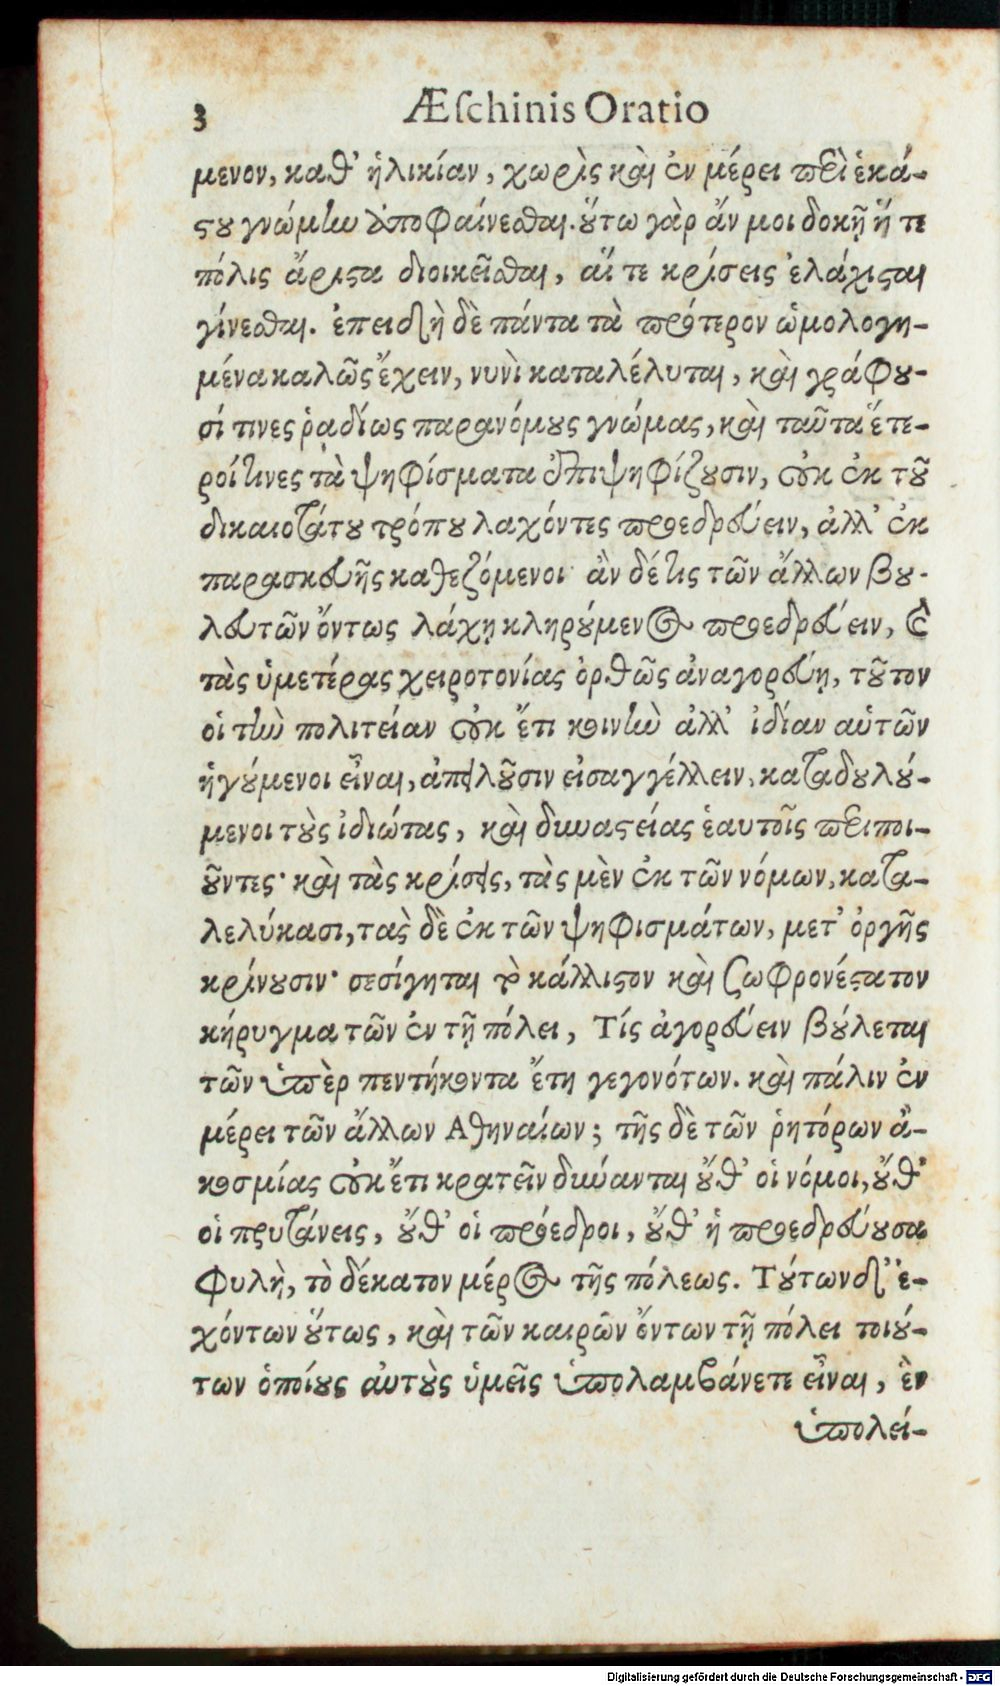 3 Æſchinis Oratio
μενον, καθ' ἡλικίαν, χωρὶς καὶ ἐν μέρει περὶ ἑκά-
στου γνώμην ἀποφαίνεσθαι. οὕτω γὰρ ἄν μοι δοκῇ ἥ τε
πόλις ἄριστα διοικεῖσθαι, αἵ τε κρίσεις ἐλάχισται
γίνεσθαι. ἐπειδὴ δὲ πάντα τὰ πρότερον ὡμολογη-
μένα καλῶς ἔχειν, νυνὶ καταλέλυται, καὶ γράφου-
σί τινες ῥᾳδίως παρανόμους γνώμας, καὶ ταῦτα ἕτε-
ροί τινες τὰ ψηφίσματα ἐπιψηφίζουσιν, οὐκ ἐκ τοῦ
δικαιοτάτου τρόπου λαχόντες προεδρεύειν, ἀλλ' ἐκ
παρασκευῆς καθεζόμενοι· ἂν δέ τις τῶν ἄλλων βου-
λευτῶν ὄντως λάχῃ κληρούμενος προεδρεύειν, καὶ
τὰς ὑμετέρας χειροτονίας ὀρθῶς ἀναγορεύῃ, τοῦτον
οἱ τὴν πολιτείαν οὐκ ἔτι κοινὴν ἀλλ' ἰδίαν αὑτῶν
ἡγούμενοι εἶναι, ἀπειλοῦσιν εἰσαγγέλλειν, καταδουλού-
μενοι τοὺς ἰδιώτας, καὶ δυναστείας ἑαυτοῖς περιποι-
οῦντες· καὶ τὰς κρίσεις, τὰς μὲν ἐκ τῶν νόμων, κατα-
λελύκασι, τας δὲ ἐκ τῶν ψηφισμάτων, μετ' ὀργῆς
κρίνουσιν· σεσίγηται τὸ κάλλιστον καὶ σωφρονέστατον
κήρυγμα τῶν ἐν τῇ πόλει, Τίς ἀγορεύειν βούλεται
τῶν ὑπὲρ πεντήκοντα ἔτη γεγονότων. καὶ πάλιν ἐν
μέρει τῶν ἄλλων Ἀθηναίων; τῆς δὲ τῶν ῥητόρων ἀ-
κοσμίας οὐκ ἔτι κρατεῖν δύνανται οὔθ' οἱ νόμοι, οὔθ'
οἱ πρυτάνεις, οὔθ' οἱ πρόεδροι, οὔθ' ἡ προεδρεύουσα
φυλὴ, τὸ δέκατον μέρος τῆς πόλεως. Τούτων δ' ἐ-
χόντων οὕτως, καὶ τῶν καιρῶν ὄντων τῇ πόλει τοιού-
των ὁποίους αὐτοὺς ὑμεῖς ὑπολαμβάνετε εἶναι, ἓν
ὑπολεί-
Digitalisierung gefördert durch die Deutsche Forschungsgemeinschaft - DFG